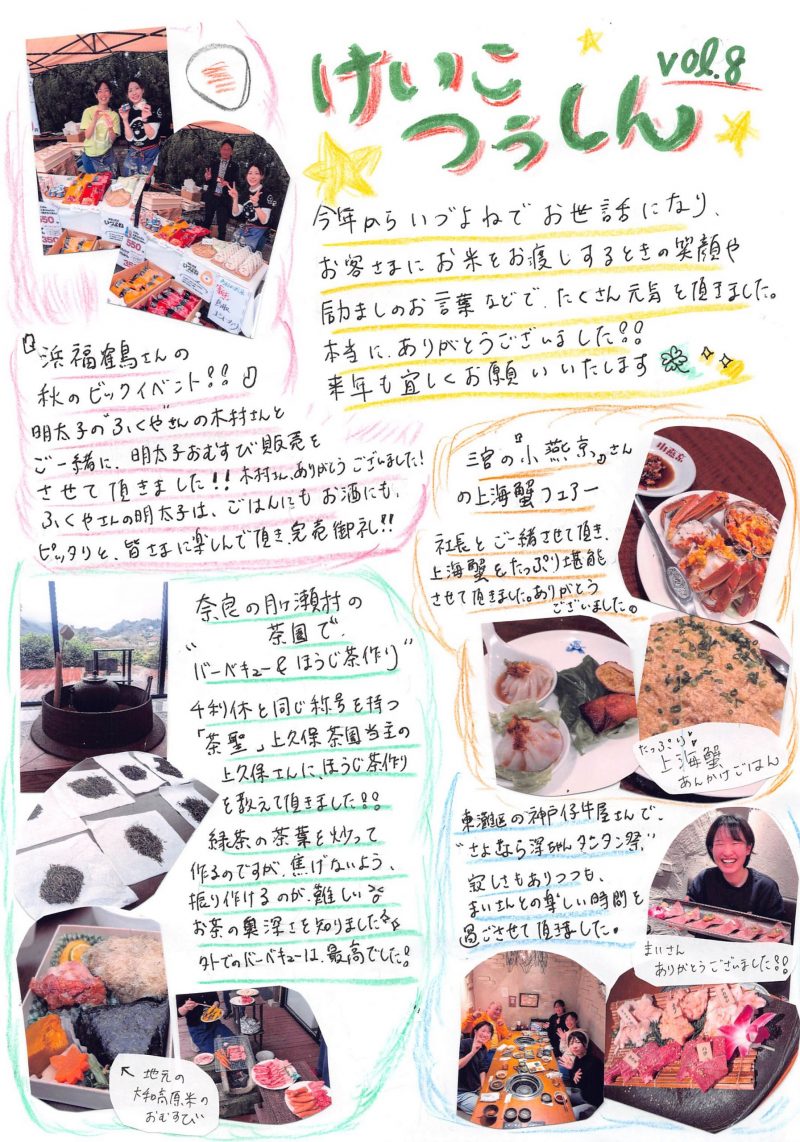 けいこ
つうしん
vol.8
今年からいづよねでお世話になり、
お客さまにお米をお渡しするときの笑顔や
励ましのお言葉などで、たくさん元気を頂きました。
本当に、ありがとうございました!!
来年も宜しくお願いいたします
浜福鶴さんの
秋のビックイベント!!
明太子の"ふくや"さんの木村さんと
ご一緒に、明太子おむすび販売を
させて頂きました!! 木村さん、ありがとうございました!
ふくやさんの明太子は、ごはんにもお酒にも、
ピッタリと、皆さまに楽しんで頂き、完売御礼!!
三宮の『小燕京』さん
の上海蟹フェアー
社長とご一緒させて頂き、
上海蟹をたっぷり堪能
させて頂きました。ありがとう
ございました。
小燕京
たっぷり
上海蟹
あんかけごはん
奈良の月ヶ瀬村の
茶園で、
"バーベキュー&ほうじ茶作り"
千利休と同じ称号を持つ
「茶聖」上久保茶園当主の
上久保さんに、ほうじ茶作り
を教えて頂きました!!
緑茶の茶葉を炒って
作るのですが、焦げないよう、
振り作けるのが、難しい
お茶の奥深さを知りました
外でのバーベキューは、最高でした!
↖地元の
大和高原米の
おむすび
東灘区の神戸仔牛屋さんで、
"さよなら深ちゃんタンタン祭"
寂しさもありつつも、
まいさんとの楽しい時間を
過ごさせて頂きました。
まいさん
ありがとうございました!!